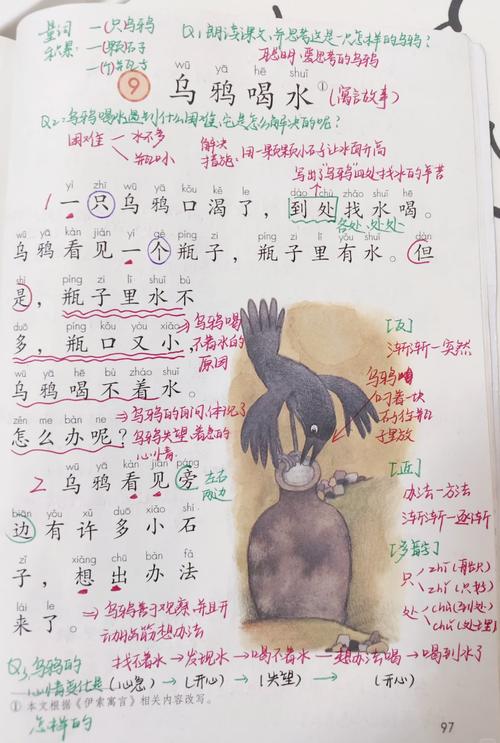 量词
积累：一(只)乌鸦
一(颗)石子
一(个)瓶子
Q1: 朗读课文，并思考这是一只怎样的乌鸦？
聪明、爱思考的乌鸦
wū yā hē shuǐ
9 乌鸦喝水①(寓言故事)
Q2: 乌鸦喝水遇到什么困难，它是怎么解决的呢？
困难 水不多
瓶口小
解决
措施：用一颗颗小石子让水面升高
写出了乌鸦四处找水的辛苦
yì zhī wū yā kǒu kě le dào chù zhǎo shuǐ hē
1 一只乌鸦口渴了，到处找水喝。
各处、处处
wū yā kàn jiàn yí gè píng zi píng zi li yǒu shuǐ dàn
乌鸦看见一个瓶子，瓶子里有水。但
shì píng zi li shuǐ bù
是，瓶子里水不
duō píng kǒu yòu xiǎo
多，瓶口又小，
⇒乌鸦喝
不着水的
原因
wū yā hē bù zháo shuǐ
乌鸦喝不着水。
zěn me bàn ne
怎么办呢？
⇒乌鸦的自问，体现了
乌鸦失望、着急的
心情。
wū yā kàn jiàn páng
2 乌鸦看见旁
左右
两边
biān yǒu xǔ duō xiǎo shí
边有许多小石
zǐ xiǎng chū bàn fǎ
子，想出办法
lái le
来了。
⇒乌鸦善于观察，并且开
动脑筋想办法
[反]
渐渐—突然
乌鸦
叼着一块
石子往瓶
子里放
[近]
办法—方法
渐渐—逐渐
[多音字]
只 zhǐ
zhī (一只)
处 chù (到处)
chǔ (处理)
Q3: 乌鸦的
心情变化是
怎样的
找不着水→发现水→喝不着水→想办法喝→喝到水了
(心急)→(开心)→(失望)→(开心)
① 本文根据《伊索寓言》相关内容改写。
97